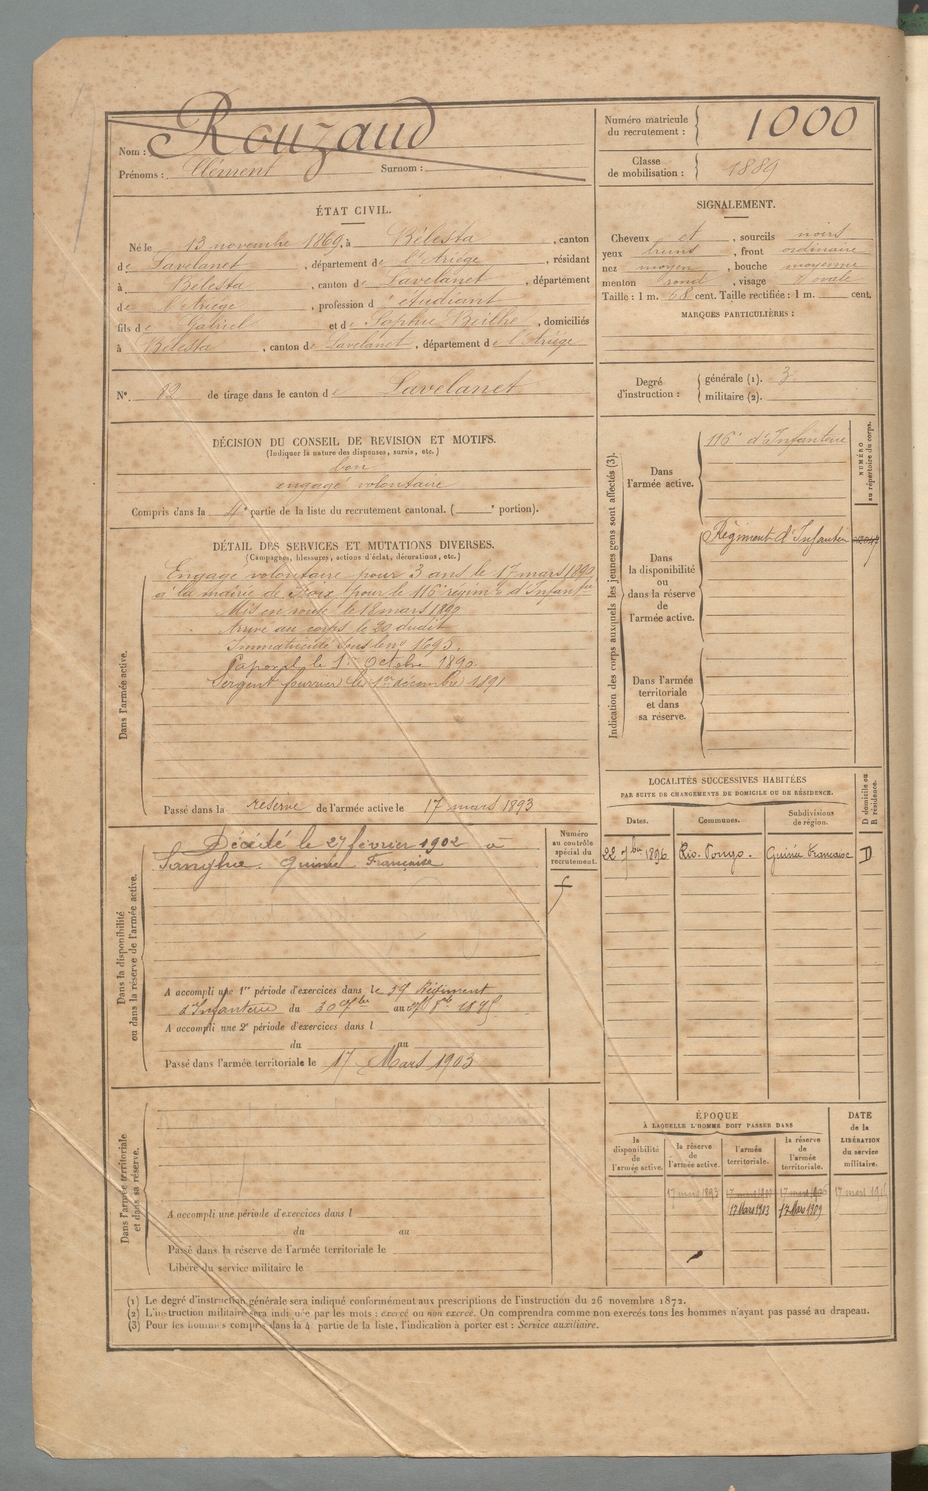 Nom : Rouzaud
Prénoms : Clément Surnom :
Numéro matricule du recrutement : 1000
Classe de mobilisation : 1889
ÉTAT CIVIL.
Né le 13 novembre 1869, à Bélesta, canton
de Lavelanet, département de l'Ariège, résidant
à Bélesta, canton de Lavelanet, département
de l'Ariège, profession d'étudiant
fils de Gabriel et de Sophie Beilhe, domiciliés
à Bélesta, canton de Lavelanet, département de l'Ariège
N° 82 de tirage dans le canton de Lavelanet
SIGNALEMENT.
Cheveux et, sourcils noirs
yeux bruns, front ordinaire
nez moyen, bouche moyenne
menton rond, visage ovale
Taille : 1 m. 68 cent. Taille rectifiée : 1 m. cent.
MARQUES PARTICULIÈRES :
Degré d'instruction : générale (1). 3
militaire (2).
DÉCISION DU CONSEIL DE REVISION ET MOTIFS.
(Indiquer la nature des dispenses, sursis, etc.)
bon
engagé volontaire
Compris dans la 4e partie de la liste du recrutement cantonal. ( e portion).
DÉTAIL DES SERVICES ET MUTATIONS DIVERSES.
(Campagnes, blessures, actions d'éclat, décorations, etc.)
Dans l'armée active.
Engagé volontaire pour 3 ans le 17 mars 1890
à la mairie de Foix pour le 116e régim' d'Infanterie
Mis en route le 18 mars 1890
Arrivé au corps le 20 dudit
Immatriculé sous le n° 1695.
Caporal le 1er Octobre 1890
Sergent fourrier le 1er décembre 1891
Passé dans la réserve de l'armée active le 17 mars 1893
Indication des corps auxquels les jeunes gens sont affectés (3).
NUMÉRO au répertoire du corps.
Dans l'armée active.
116e d'Infanterie
Dans la disponibilité ou dans la réserve de l'armée active.
Régiment d'Infanterie
Dans l'armée territoriale et dans sa réserve.
LOCALITÉS SUCCESSIVES HABITÉES
PAR SUITE DE CHANGEMENTS DE DOMICILE OU DE RÉSIDENCE.
D domicile ou R résidence.
Dates. Communes. Subdivisions de région.
22 7bre 1896 Rio-Pongo. Guinée Française D
Dans la disponibilité ou dans la réserve de l'armée active.
Numéro au contrôle spécial du recrutement.
Décédé le 27 février 1902 à
Sangha. Guinée Française
A accompli une 1re période d'exercices dans le 59 Régiment
d'Infanterie du 30 au 1895
A accompli une 2e période d'exercices dans l
du au
Passé dans l'armée territoriale le 17 Mars 1903
Dans l'armée territoriale et dans sa réserve.
A accompli une période d'exercices dans l
du au
Passé dans la réserve de l'armée territoriale le
Libéré du service militaire le
ÉPOQUE
À LAQUELLE L'HOMME DOIT PASSER DANS
DATE de la LIBÉRATION du service militaire.
la disponibilité de l'armée active. la réserve de l'armée active. l'armée territoriale. la réserve de l'armée territoriale.
17 mars 1893
17 Mars 1903 17 Mars 1909
(1) Le degré d'instruction générale sera indiqué conformément aux prescriptions de l'instruction du 26 novembre 1872.
(2) L'instruction militaire sera indiquée par les mots : exercé ou non exercé. On comprendra comme non exercés tous les hommes n'ayant pas passé au drapeau.
(3) Pour les hommes compris dans la 4e partie de la liste, l'indication à porter est : Service auxiliaire.